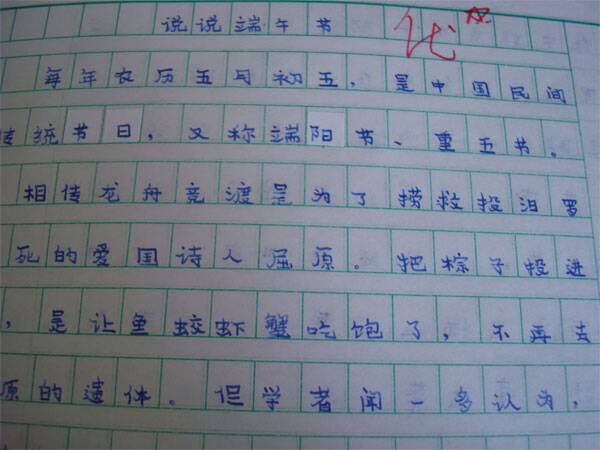 说说端午节 优
每年农历五月初五，是中国民间
传统节日，又称端阳节、重五节。
相传龙舟竞渡是为了捞救投汨罗
死的爱国诗人屈原。把粽子投进
，是让鱼蛟虾蟹吃饱了，不再去
原的遗体。但学者闻一多认为，